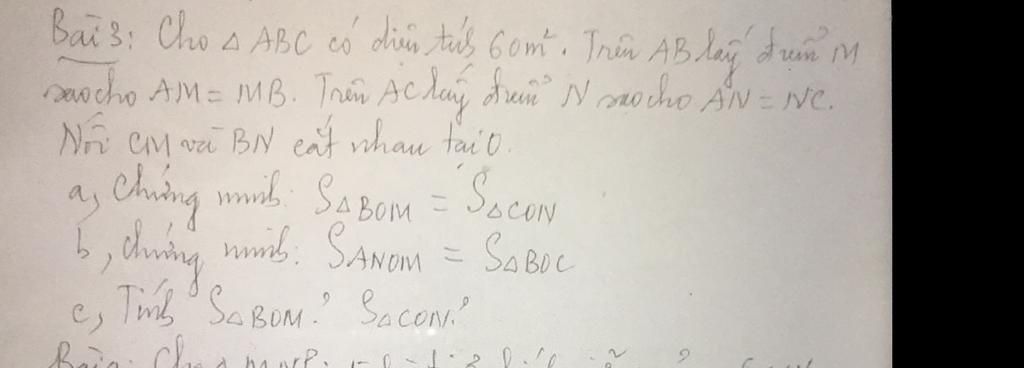 Bài 3: Cho △ ABC có diện tích 60m². Trên AB lấy điểm M
sao cho AM = MB. Trên AC lấy điểm N sao cho AN = NC.
Nối CM và BN cắt nhau tại O.
a, Chứng minh: S△BOM = S△CON
b, chứng minh: SANOM = S△BOC
c, Tính S△BOM? S△CON?